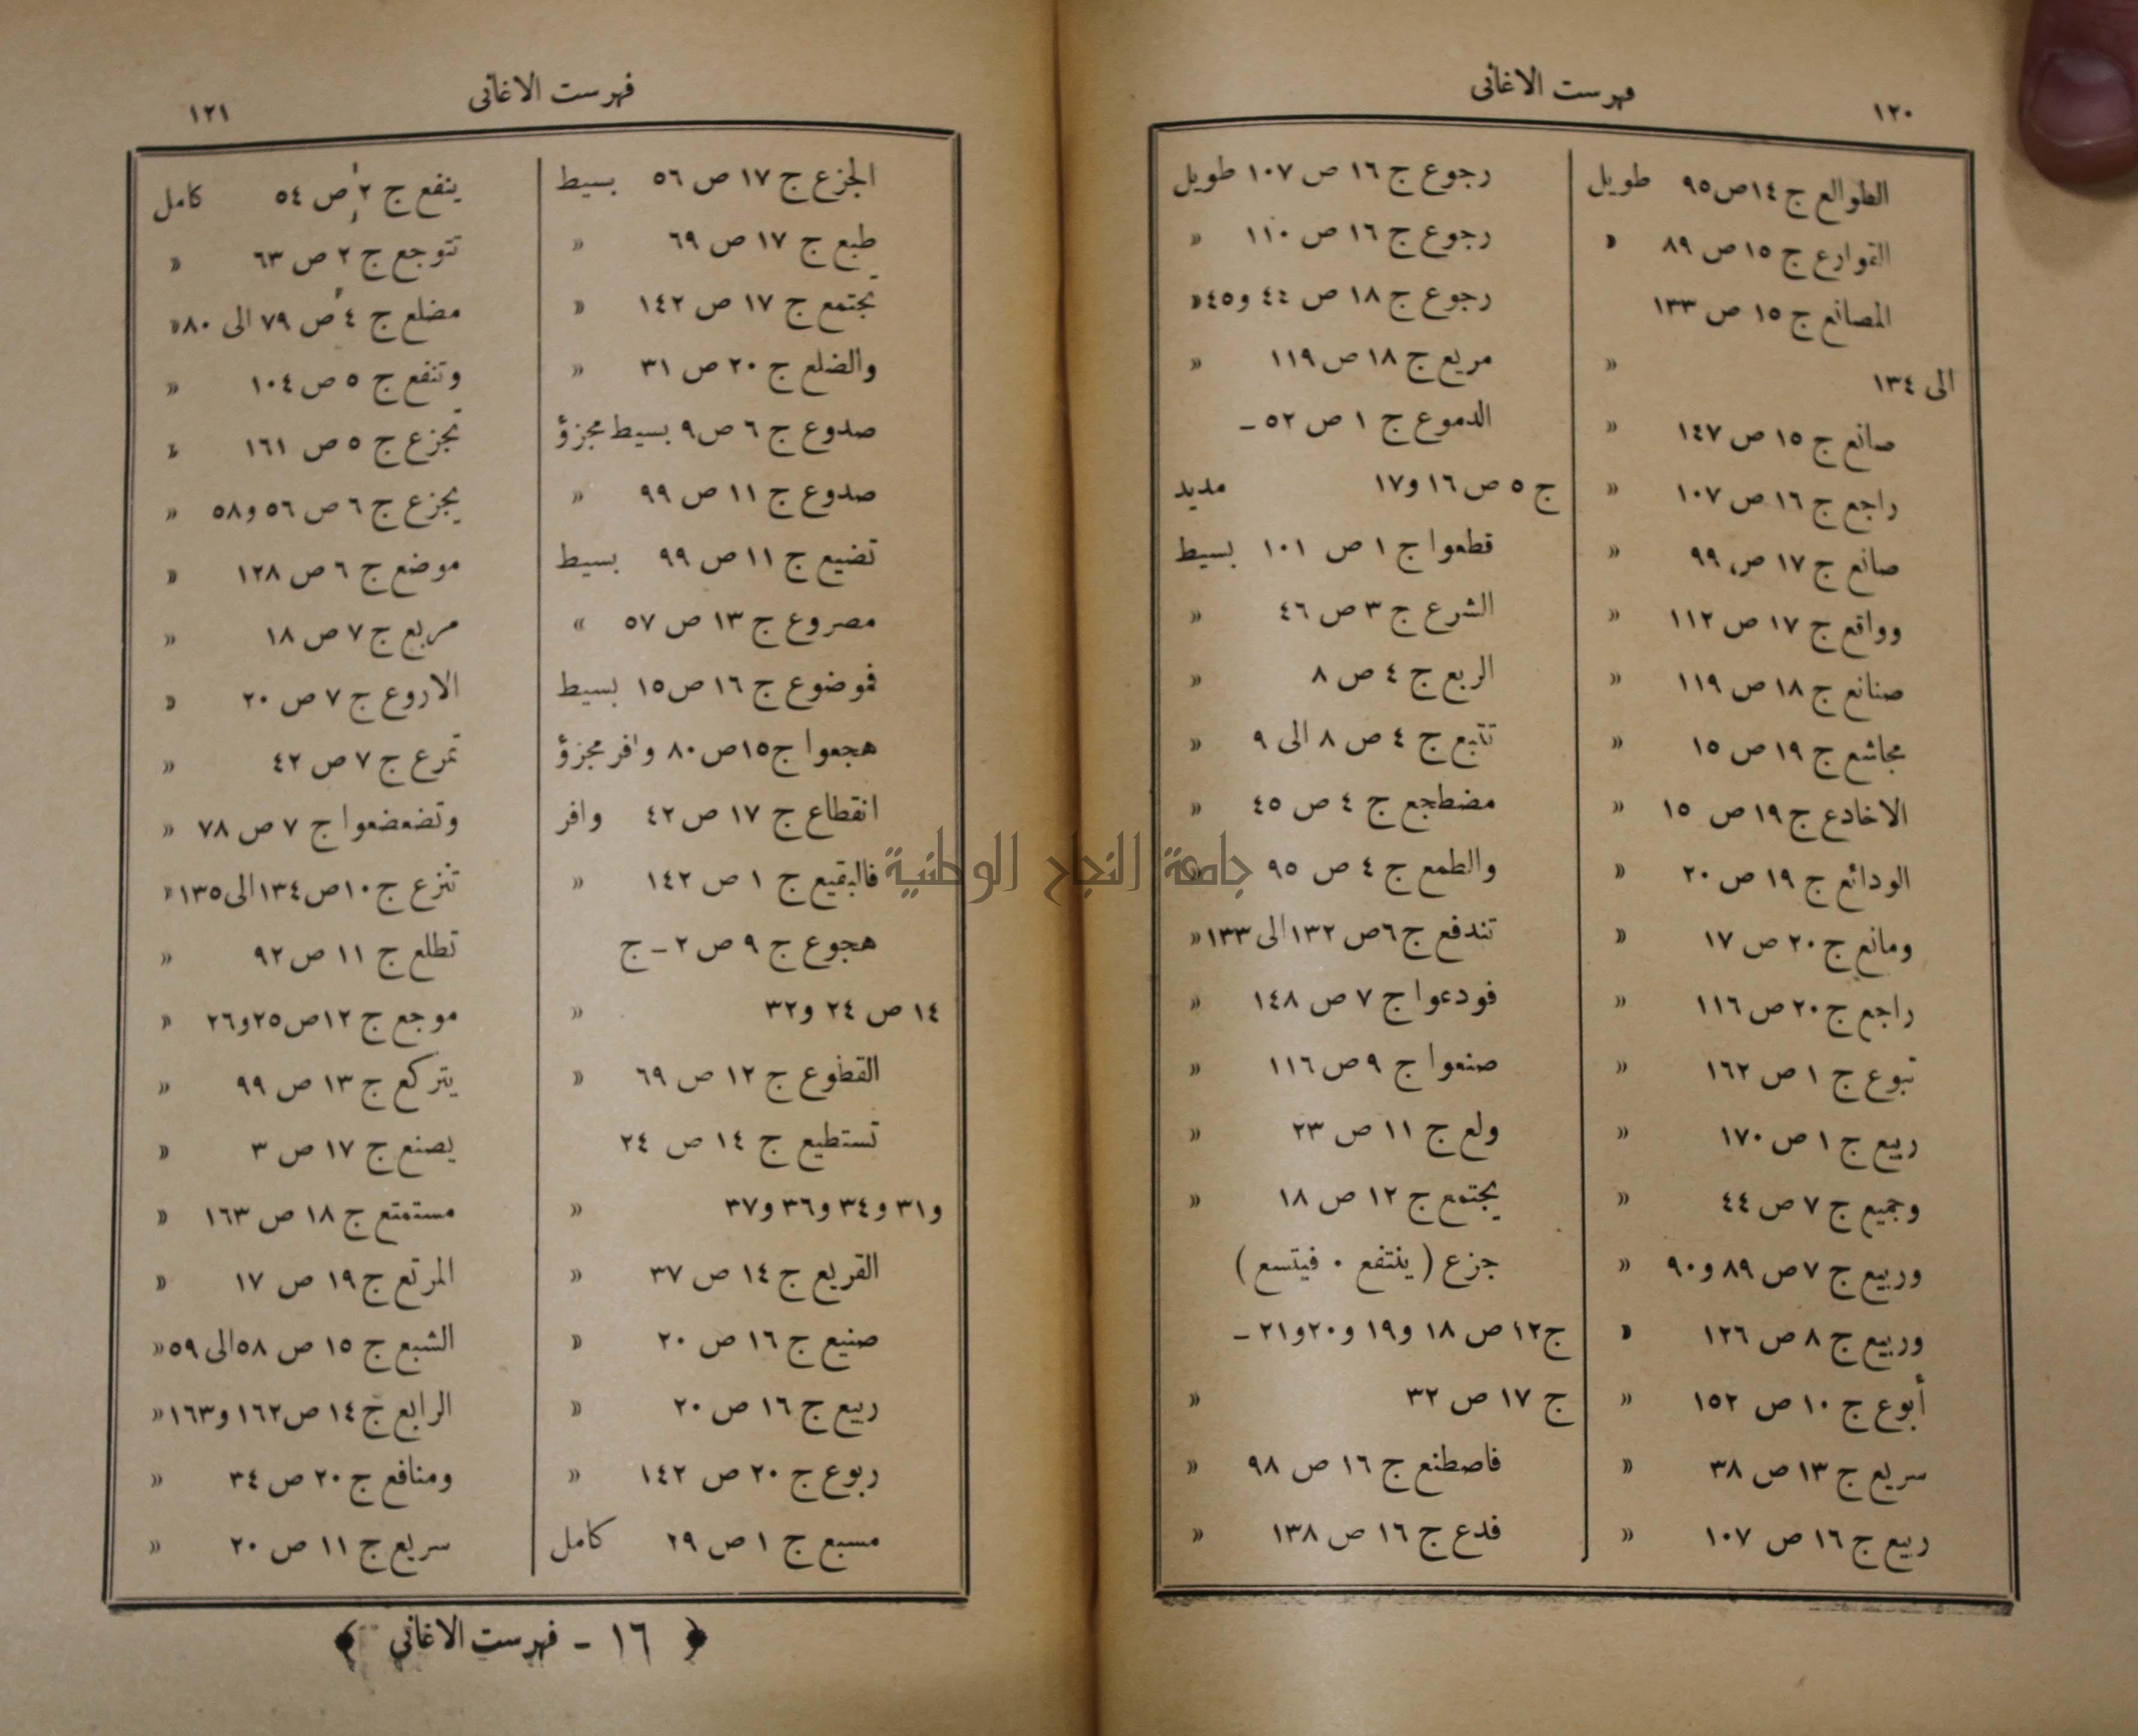 ١٢٠
فهرست الاغانى
الطوالع ج ١٤ ص ٩٥ طويل
القوارع ج ١٥ ص ٨٩ «
المصانع ج ١٥ ص ١٣٣
الى ١٣٤ «
صانع ج ١٥ ص ١٤٧ «
راجع ج ١٦ ص ١٠٧ «
صانع ج ١٧ ص ٩٩ «
وواقع ج ١٧ ص ١١٢ «
صنانع ج ١٨ ص ١١٩ «
مجاشع ج ١٩ ص ١٥ «
الاخادع ج ١٩ ص ١٥ «
الودائع ج ١٩ ص ٢٠ «
ومانع ج ٢٠ ص ١٧ «
راجع ج ٢٠ ص ١١٦ «
تبوع ج ١ ص ١٦٢ «
ربيع ج ١ ص ١٧٠ «
وجميع ج ٧ ص ٤٤ «
وربيع ج ٧ ص ٨٩ و ٩٠ «
وربيع ج ٨ ص ١٢٦ «
أبوع ج ١٠ ص ١٥٢ «
سريع ج ١٣ ص ٣٨ «
ربيع ج ١٦ ص ١٠٧ «
رجوع ج ١٦ ص ١٠٧ طويل
رجوع ج ١٦ ص ١١٠ «
رجوع ج ١٨ ص ٤٤ و ٤٥ «
مريع ج ١٨ ص ١١٩ «
الدموع ج ١ ص ٥٢ –
ج ٥ ص ١٦ و ١٧ مديد
قطعوا ج ١ ص ١٠١ بسيط
الشرع ج ٣ ص ٤٦ «
الربع ج ٤ ص ٨ «
تتبع ج ٤ ص ٨ الى ٩ «
مضطجع ج ٤ ص ٤٥ «
والطمع ج ٤ ص ٩٥
تندفع ج ٦ ص ١٣٢ الى ١٣٣ «
فودعوا ج ٧ ص ١٤٨ «
صنعوا ج ٩ ص ١١٦ «
ولع ج ١١ ص ٢٣ «
يجتمع ج ١٢ ص ١٨ «
جزع ( ينتفع ٠ فيتسع )
ج ١٢ ص ١٨ و ١٩ و ٢٠ و ٢١ –
ج ١٧ ص ٣٢ «
فاصطنع ج ١٦ ص ٩٨ «
فدع ج ١٦ ص ١٣٨ «
فهرست الاغانى
١٢١
الجزع ج ١٧ ص ٥٦ بسيط
طبع ج ١٧ ص ٦٩ «
تجتمع ج ١٧ ص ١٤٢ «
والضلع ج ٢٠ ص ٣١ «
صدوع ج ٦ ص ٩ بسيط مجزؤ
صدوع ج ١١ ص ٩٩ «
تضيع ج ١١ ص ٩٩ بسيط
مصروع ج ١٣ ص ٥٧ »
فموضوع ج ١٦ ص ١٥ بسيط
هجعوا ج ١٥ ص ٨٠ وافر مجزؤ
انقطاع ج ١٧ ص ٤٢ وافر
فالبقيع ج ١ ص ١٤٢ «
هجوع ج ٩ ص ٢ – ج
١٤ ص ٢٤ و ٣٢ «
القطوع ج ١٢ ص ٦٩ «
تستطيع ج ١٤ ص ٢٤
و ٣١ و ٣٤ و ٣٦ و ٣٧ «
القريع ج ١٤ ص ٣٧ «
صنيع ج ١٦ ص ٢٠ «
ربيع ج ١٦ ص ٢٠ «
ربوع ج ٢٠ ص ١٤٢ «
مسبع ج ١ ص ٢٩ كامل
ينفع ج ٢ ص ٥٤ كامل
تتوجع ج ٢ ص ٦٣ «
مضلع ج ٤ ص ٧٩ الى ٨٠ «
وتنفع ج ٥ ص ١٠٤ «
تجزع ج ٥ ص ١٦١ «
يجزع ج ٦ ص ٥٦ و ٥٨ «
موضع ج ٦ ص ١٢٨ «
مربع ج ٧ ص ١٨ «
الاروع ج ٧ ص ٢٠ «
تمرع ج ٧ ص ٤٢ «
وتضعضعوا ج ٧ ص ٧٨ «
تنزع ج ١٠ ص ١٣٤ الى ١٣٥ «
تطلع ج ١١ ص ٩٢ «
موجع ج ١٢ ص ٢٥ و ٢٦ «
يتركع ج ١٣ ص ٩٩ «
يصنع ج ١٧ ص ٣ «
مستمتع ج ١٨ ص ١٦٣ «
المرتع ج ١٩ ص ١٧ «
الشبع ج ١٥ ص ٥٨ الى ٥٩ «
الرابع ج ١٤ ص ١٦٢ و ١٦٣ «
ومنافع ج ٢٠ ص ٣٤ «
سريع ج ١١ ص ٢٠ «
﴿ ١٦ – فهرست الاغانى ﴾
جامعة النجاح الوطنية